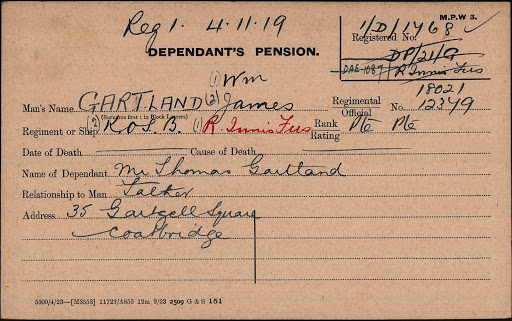 Reg 1. 4.11.19
M.P.W 3.
1/D/1768
Registered No.
DEPENDANT'S PENSION.
DP/21/G
R Innis Fus
(1) Wm
Man's Name GARTLAND (2) James
(Surname first: in Block Letters)
Regimental Official No. 18021
12379
Regiment or Ship (2) K.O.S.B. (1) R. Innis Fus
Rank Rating Pte Pte
Date of Death
Cause of Death
Name of Dependant Mr Thomas Gartland
Relationship to Man Father
Address 35 Square
Coatbridge
5000/4/23—[M3553] 11723/A855 12m 9/23 2509 G & S 151